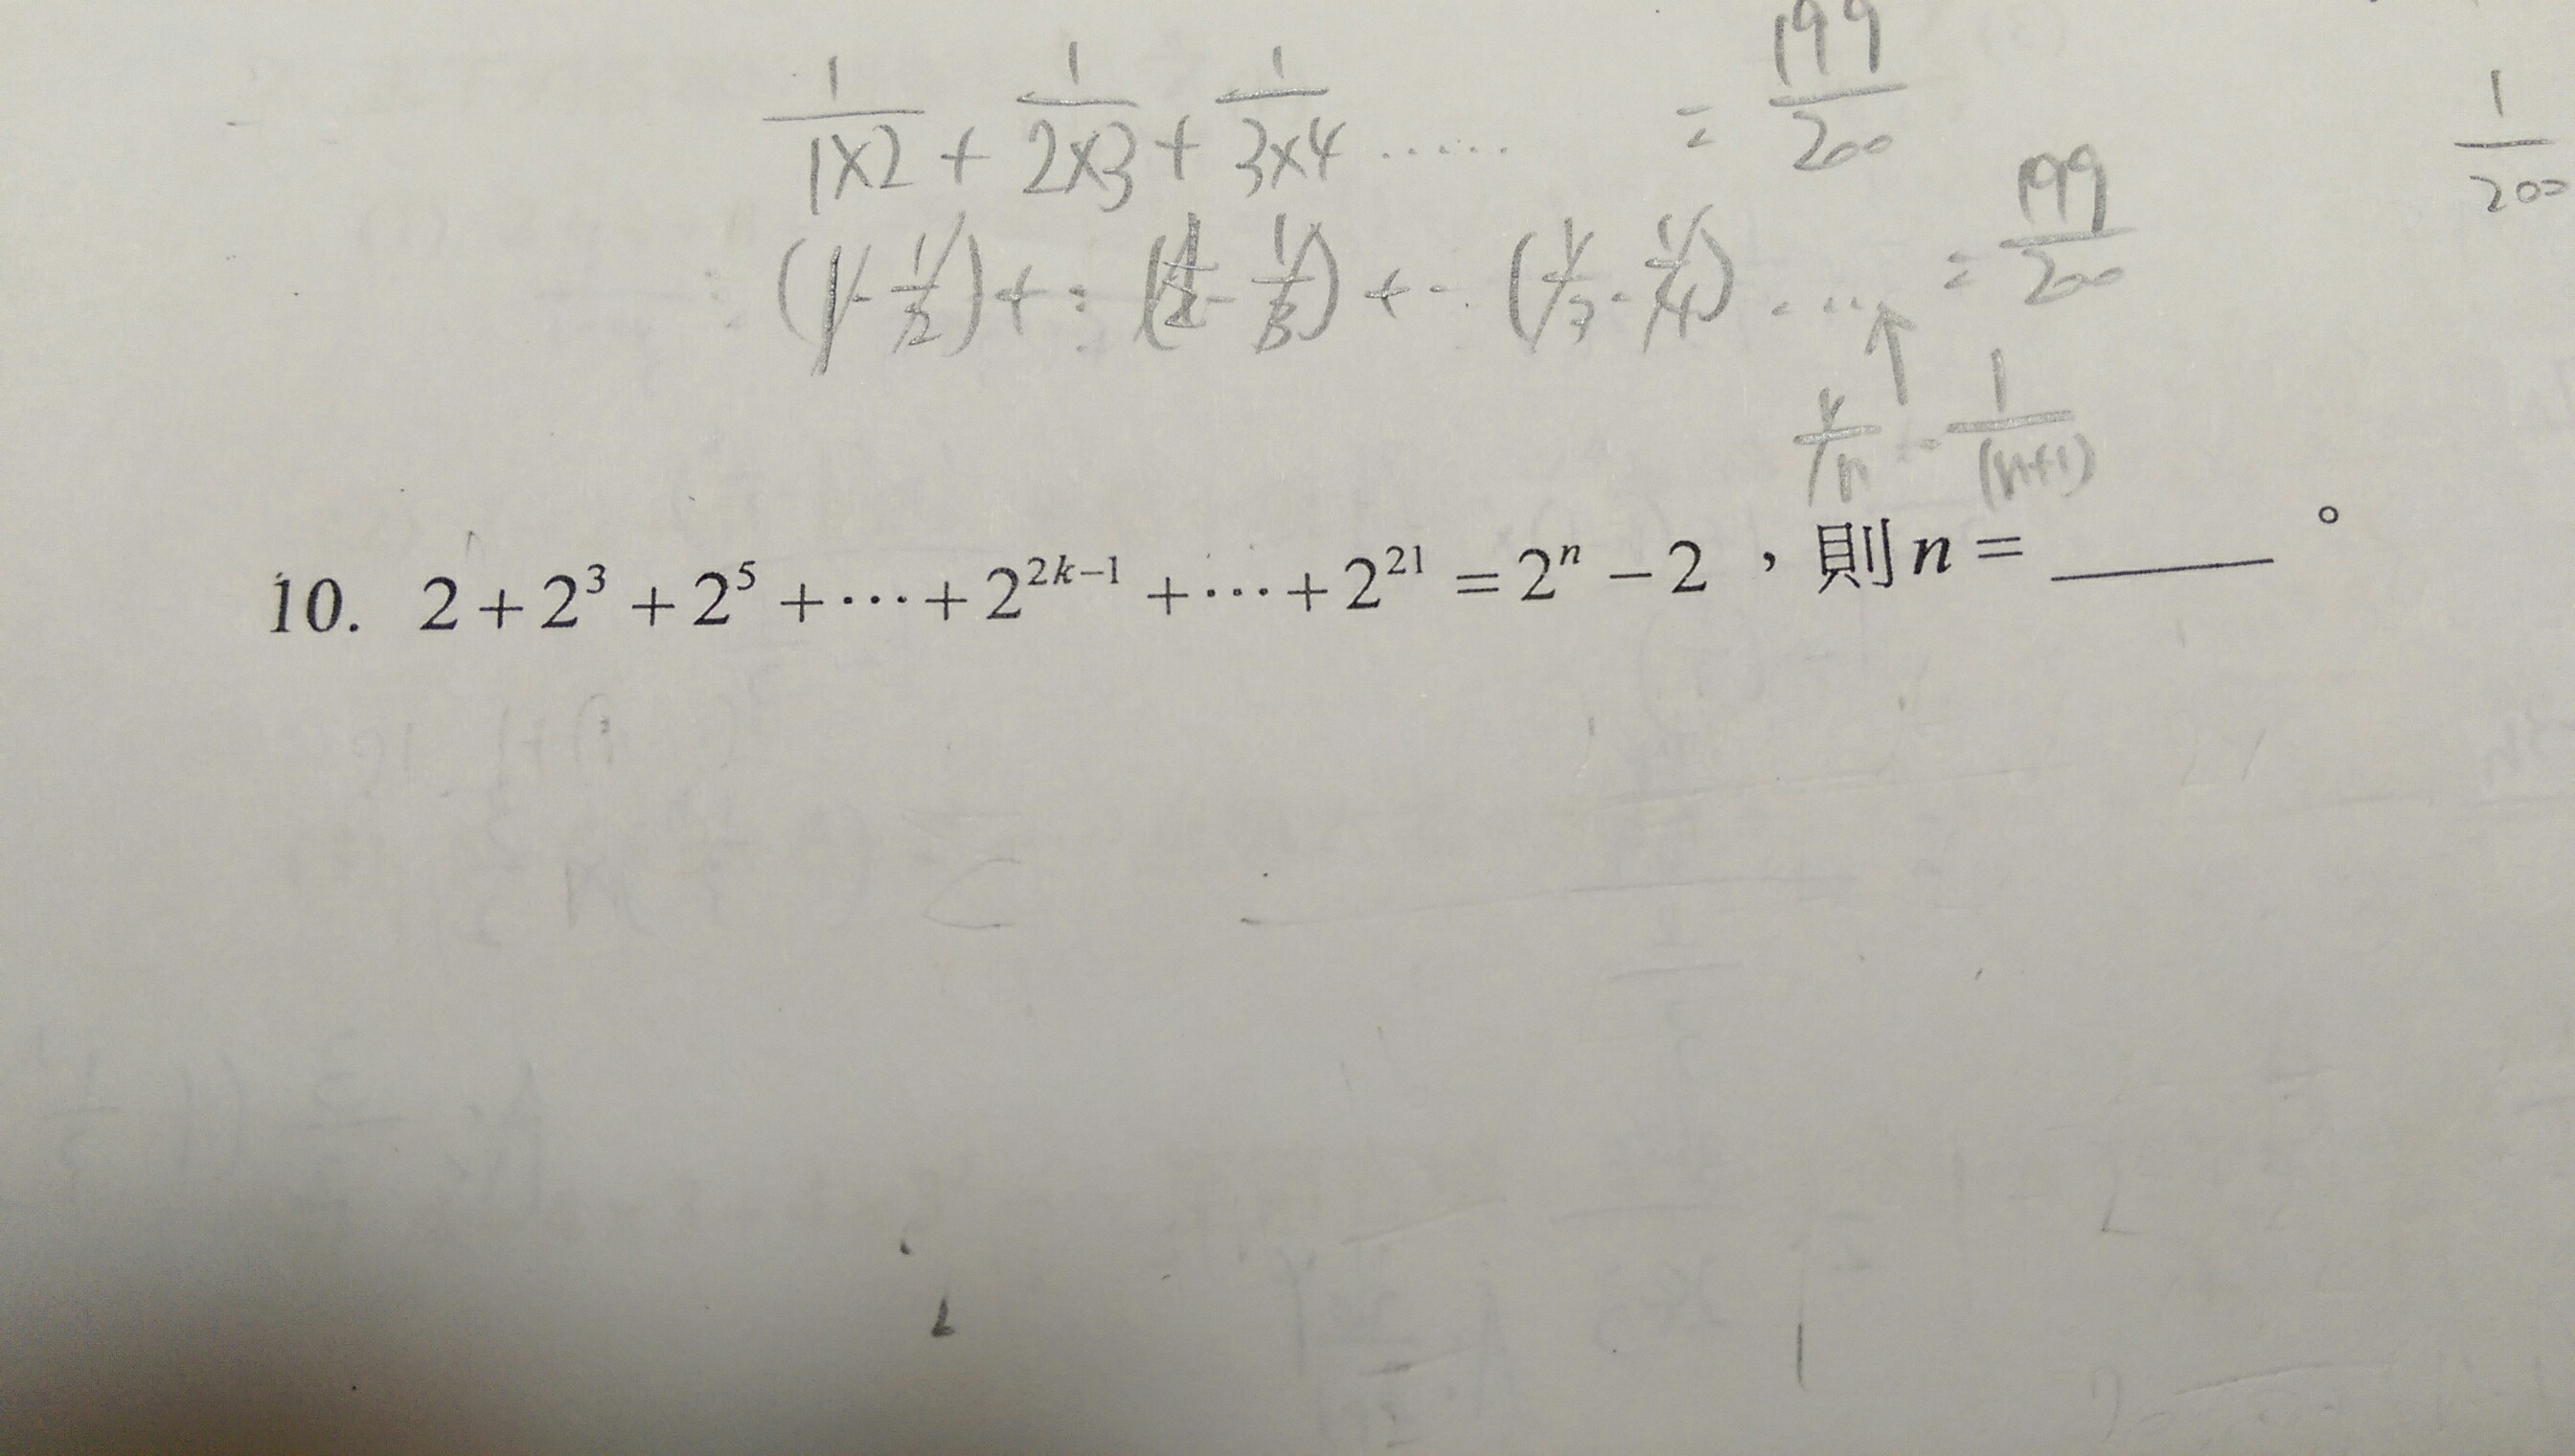 1/(1×2) + 1/(2×3) + 1/(3×4) ..... = 199/200
1/200
(1 - 1/2) + (1/2 - 1/3) + (1/3 - 1/4) ..... = 199/200
1/n - 1/(n+1)
10. 2 + 2^3 + 2^5 + ⋯ + 2^{2k-1} + ⋯ + 2^{21} = 2^n - 2 ,則 n = ______ 。